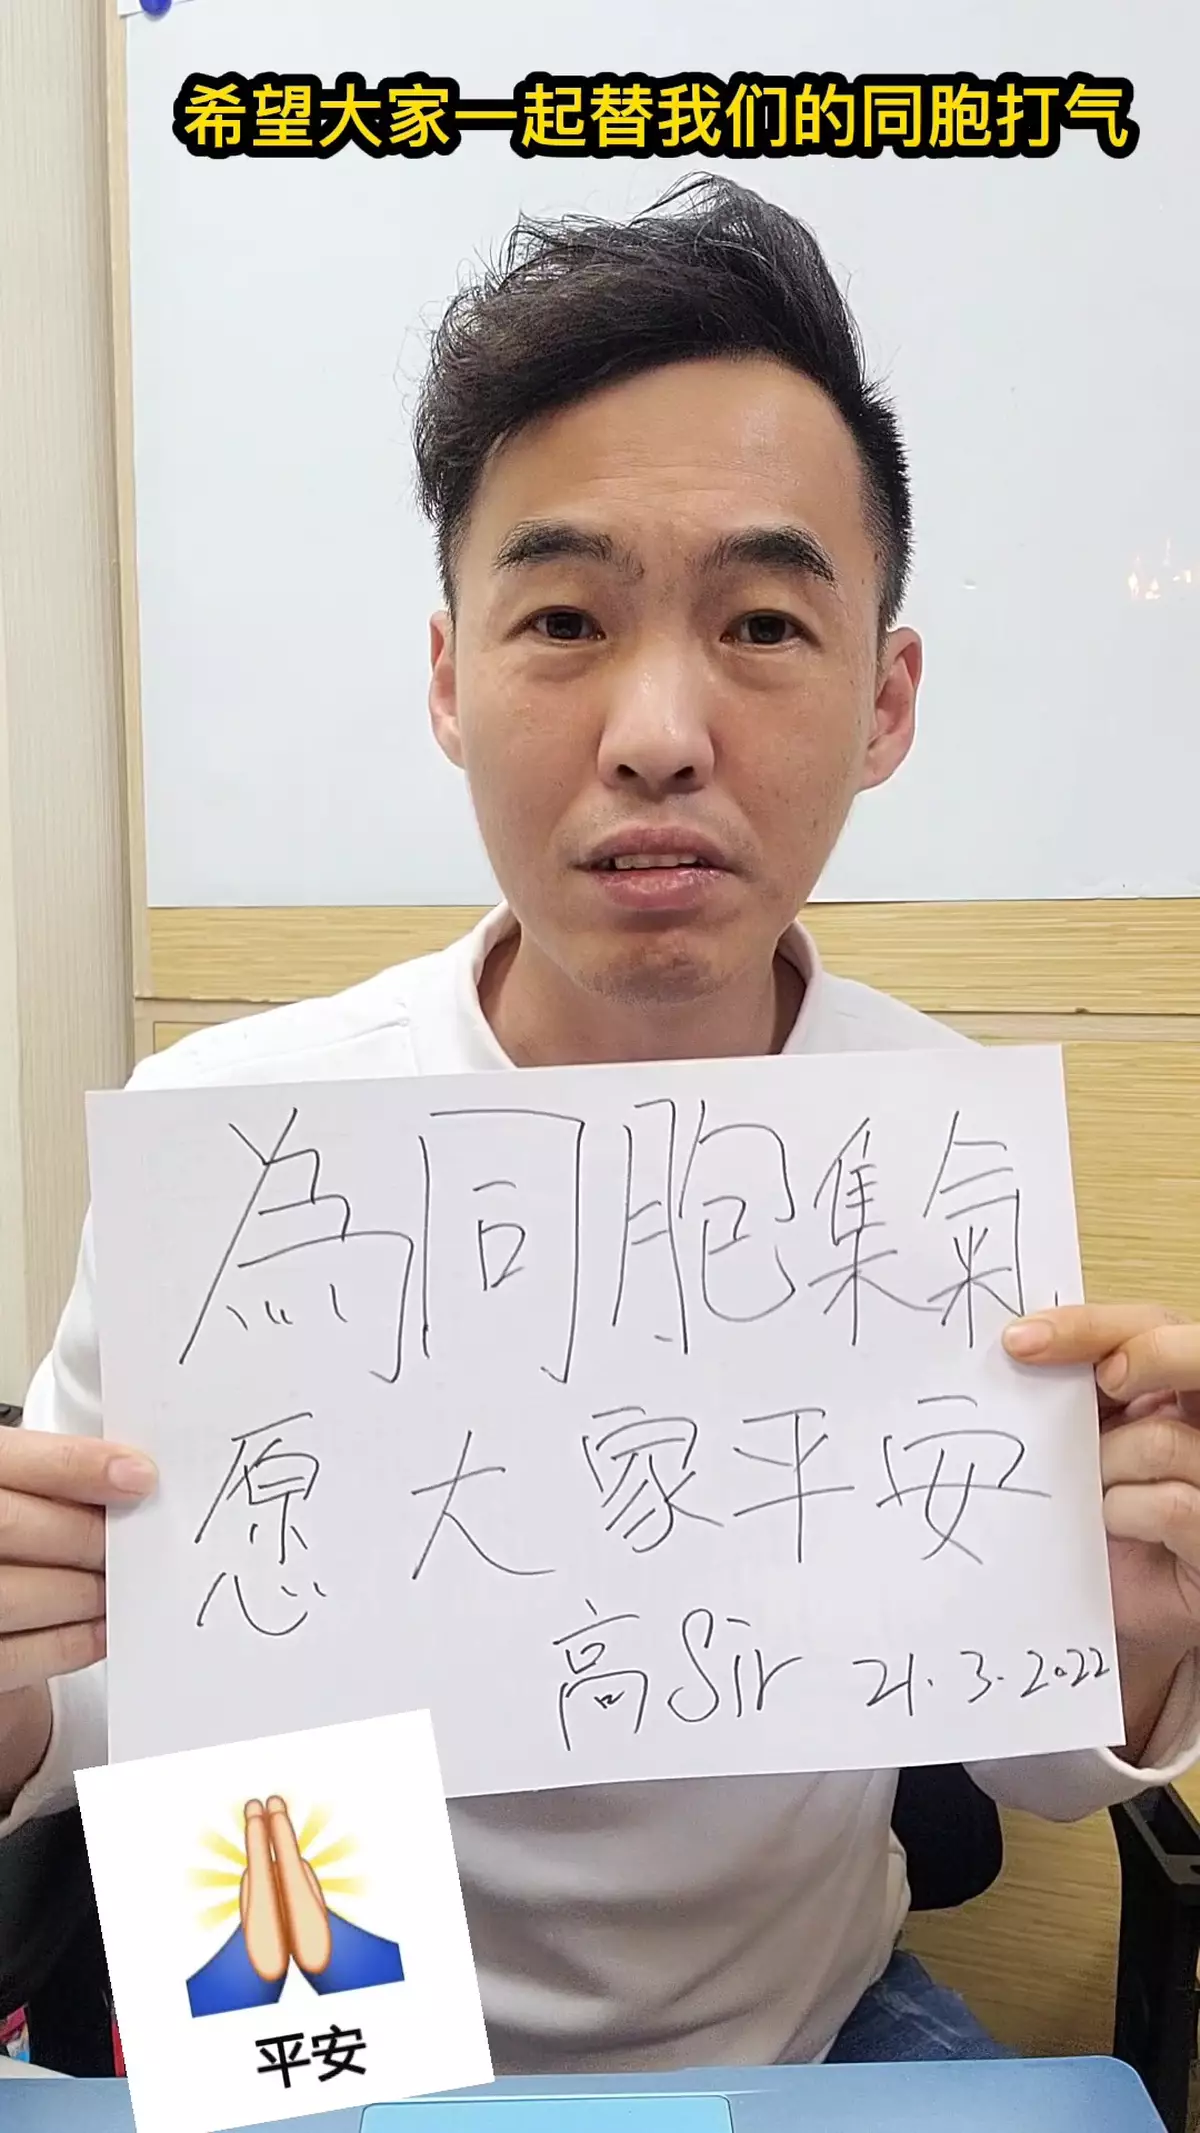 希望大家一起替我们的同胞打气
為同胞集氣
愿大家平安
高Sir 21.3.2022
平安